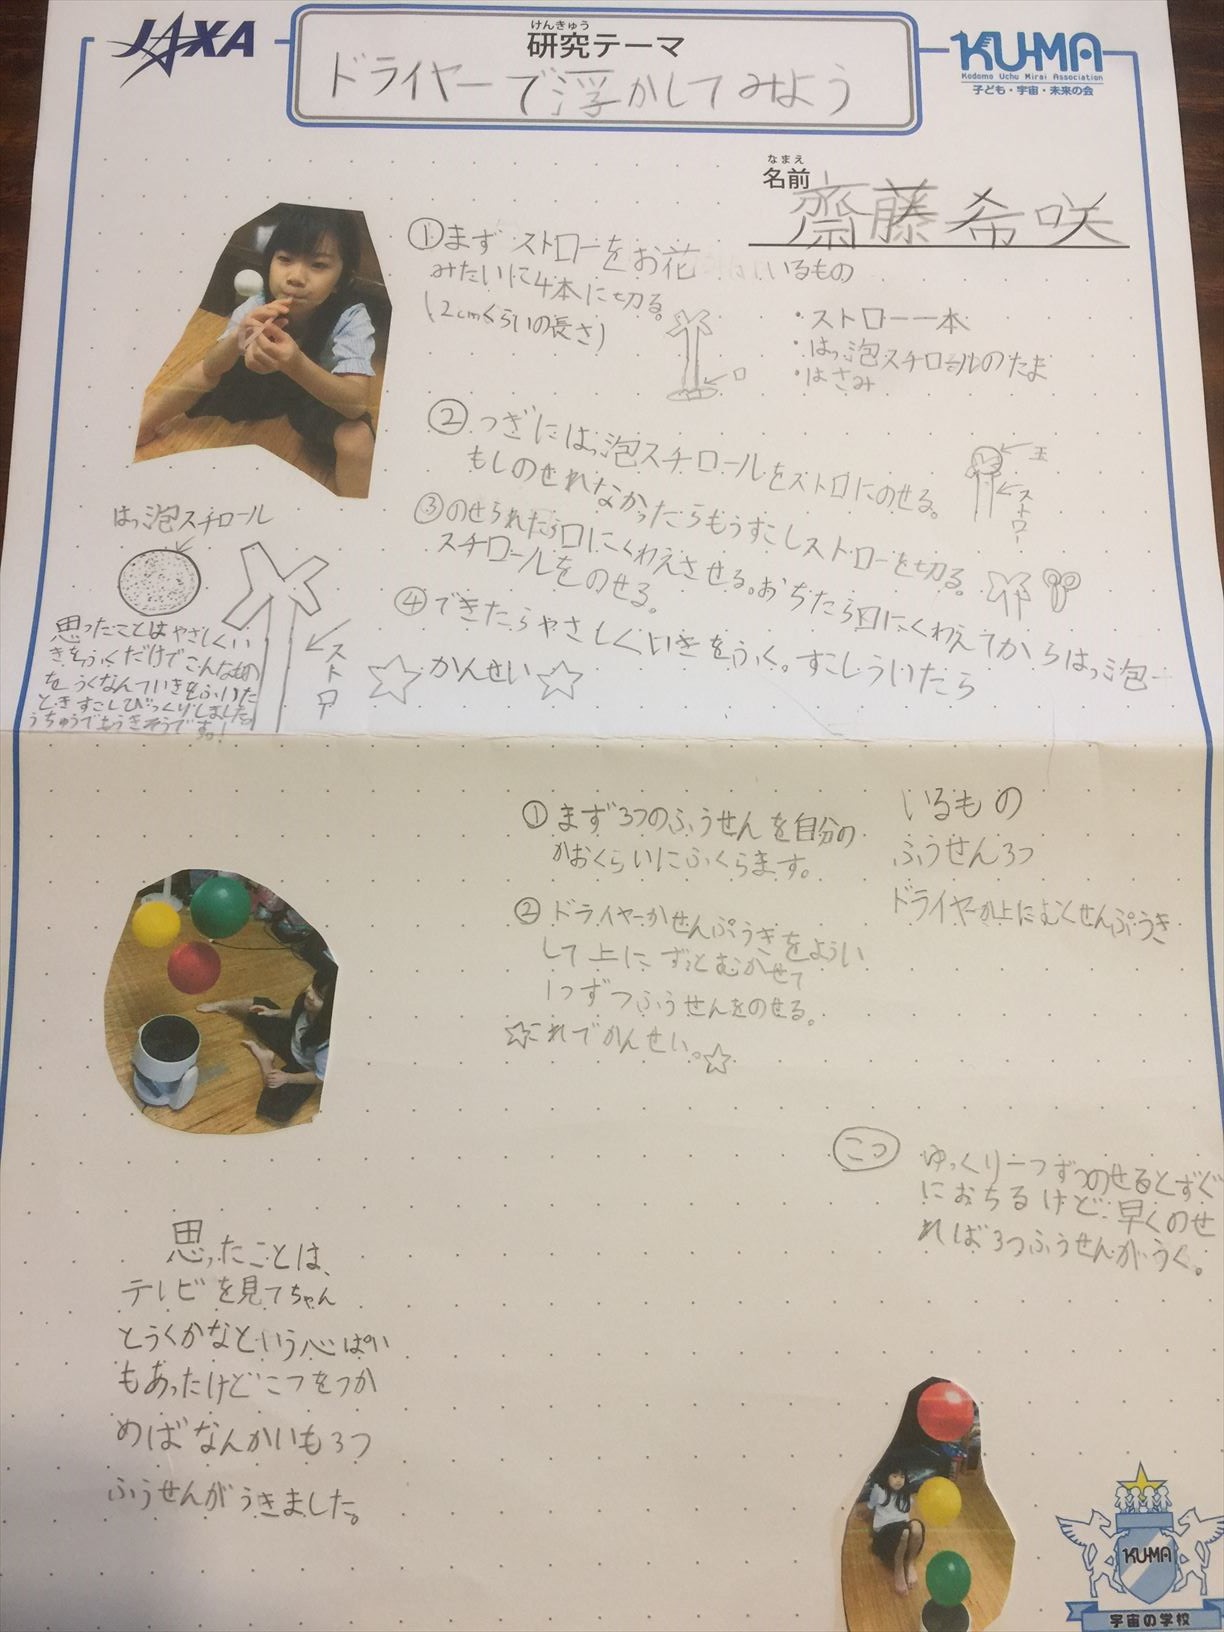 JAXA
けんきゅう
研究テーマ
ドライヤーで浮かしてみよう
KU-MA
Kodomo Uchu Mirai Association
子ども・宇宙・未来の会
なまえ
名前 齋藤希咲
①まずストローをお花
みたいに4本に切る。
(2cmくらいの長さ)
いるもの
・ストロー一本
・はっ泡スチロールのたま
・はさみ
口
②つぎにはっ泡スチロールをストロにのせる。
もしのせれなかったらもうすこしストローを切る。
玉
ストロー
③のせられたら口にくわえさせる。おちたら口にくわえてからはっ泡
スチロールをのせる。
④できたらやさしくいきをふく。すこしういたら
☆かんせい☆
はっ泡スチロール
ストロー
思ったことはやさしくい
きをふくだけでこんなもの
をうくなんていきをふいた
ときすこしびっくりしました。
うちゅうでもうきそうです。!
①まず3つのふうせんを自分の
かおくらいにふくらます。
いるもの
ふうせん3つ
ドライヤーか上にむくせんぷうき
②ドライヤーかせんぷうきをようい
して上にずっとむかせて
1つずつふうせんをのせる。
☆これでかんせい。☆
こつ
ゆっくり一つずつのせるとすぐ
におちるけど早くのせ
れば3つふうせんがうく。
思ったことは、
テレビを見てちゃん
とうくかなという心ぱい
もあったけどこつをつか
めばなんかいも3つ
ふうせんがうきました。
KU-MA
宇宙の学校